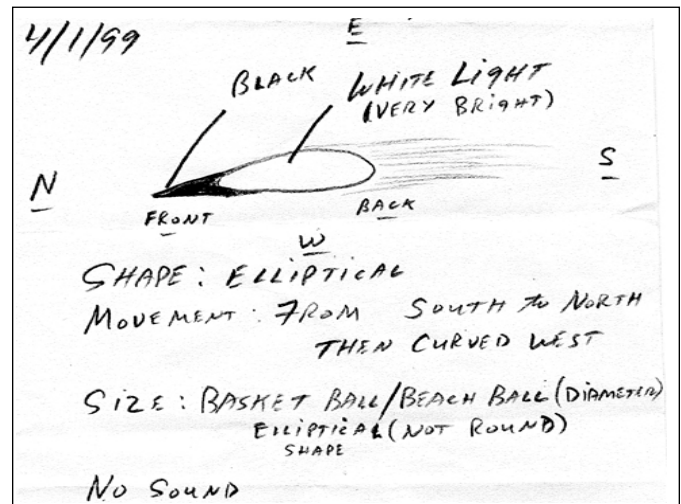 4/1/99
E
BLACK
WHITE LIGHT
(VERY BRIGHT)
N
S
FRONT
BACK
W
SHAPE: ELLIPTICAL
MOVEMENT: FROM SOUTH TO NORTH
THEN CURVED WEST
SIZE: BASKET BALL/BEACH BALL (DIAMETER)
ELLIPTICAL (NOT ROUND)
SHAPE
NO SOUND